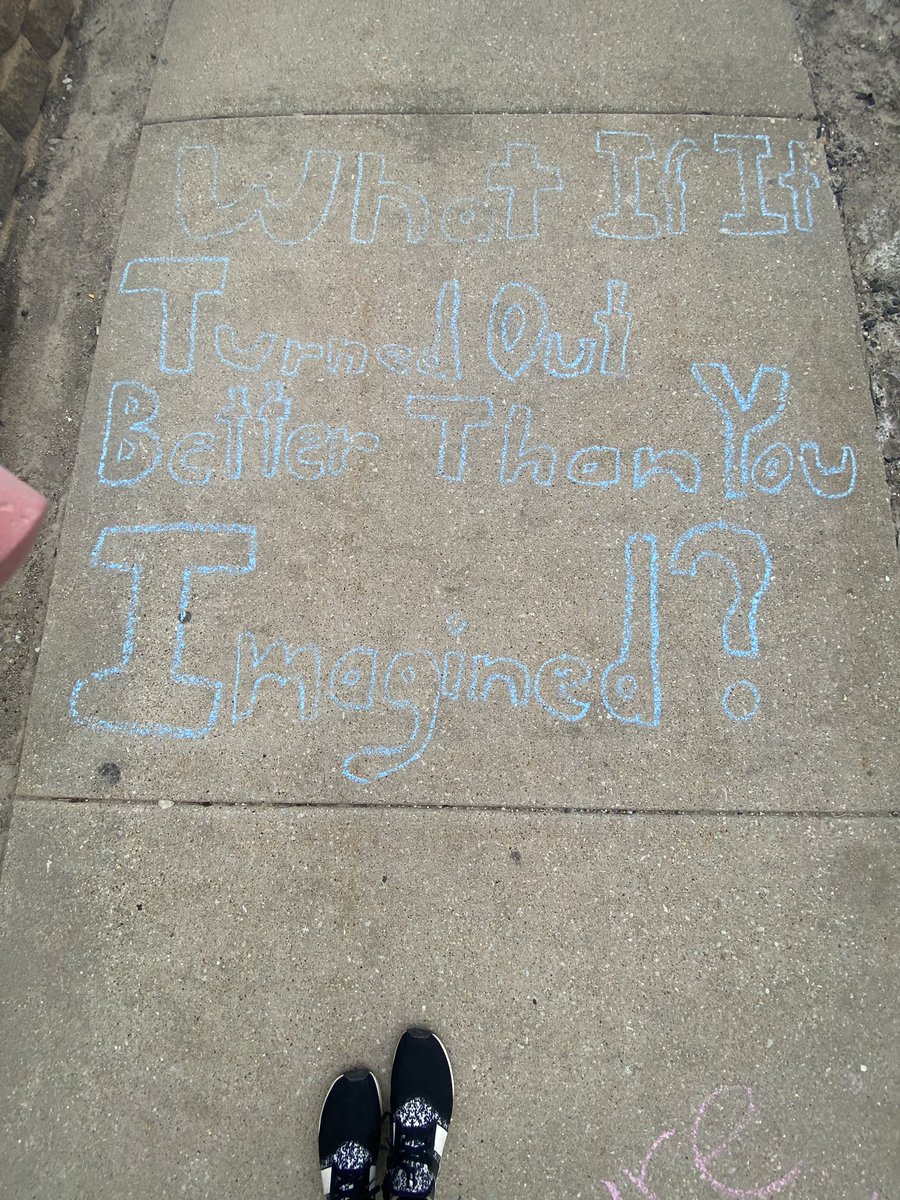 What If It
Turned Out
Better Than You
Imagined?
re